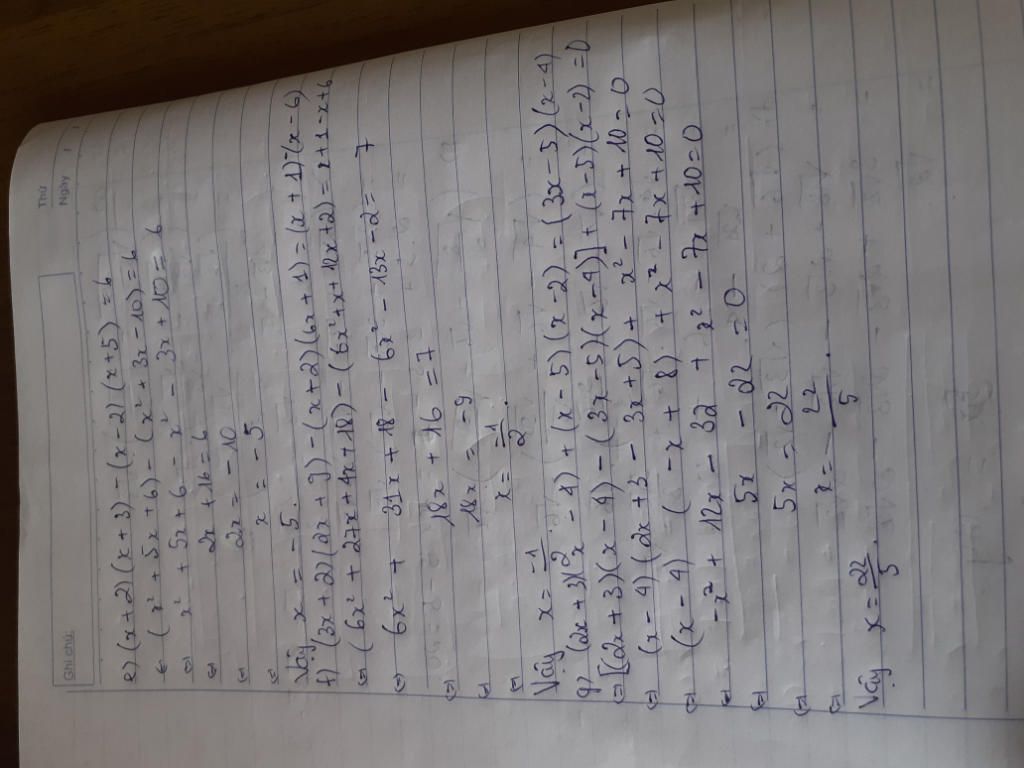 Ghi chú:
Thứ
Ngày
e) (x+2)(x+3) - (x-2)(x+5) = 6
(x² + 5x + 6) - (x² + 3x - 10) = 6
⇔ x² + 5x + 6 - x² - 3x + 10 = 6
⇔ 2x + 16 = 6
⇔ 2x = -10
x = -5.
Vậy x = -5.
f) (3x+2)(2x+9) - (x+2)(6x+1) = (x+1)-(x-6)
⇔ (6x² + 27x + 4x + 18) - (6x² + x + 12x + 2) = x + 1 - x + 6
⇔ 6x² + 31x + 18 - 6x² - 13x - 2 = 7
⇔ 18x + 16 = 7
⇔ 18x = -9
⇔ x = -1/2.
Vậy x = -1/2.
g) (2x+3)(x-4) + (x-5)(x-2) = (3x-5)(x-4)
⇔ [(2x+3)(x-4) - (3x-5)(x-4)] + (x-5)(x-2) = 0
⇔ (x-4)(2x+3 - 3x+5) + x² - 7x + 10 = 0
⇔ (x-4) (-x + 8) + x² - 7x + 10 = 0
⇔ -x² + 12x - 32 + x² - 7x + 10 = 0
⇔ 5x - 22 = 0
⇔ 5x = 22
⇔ x = 22/5.
Vậy x = 22/5.